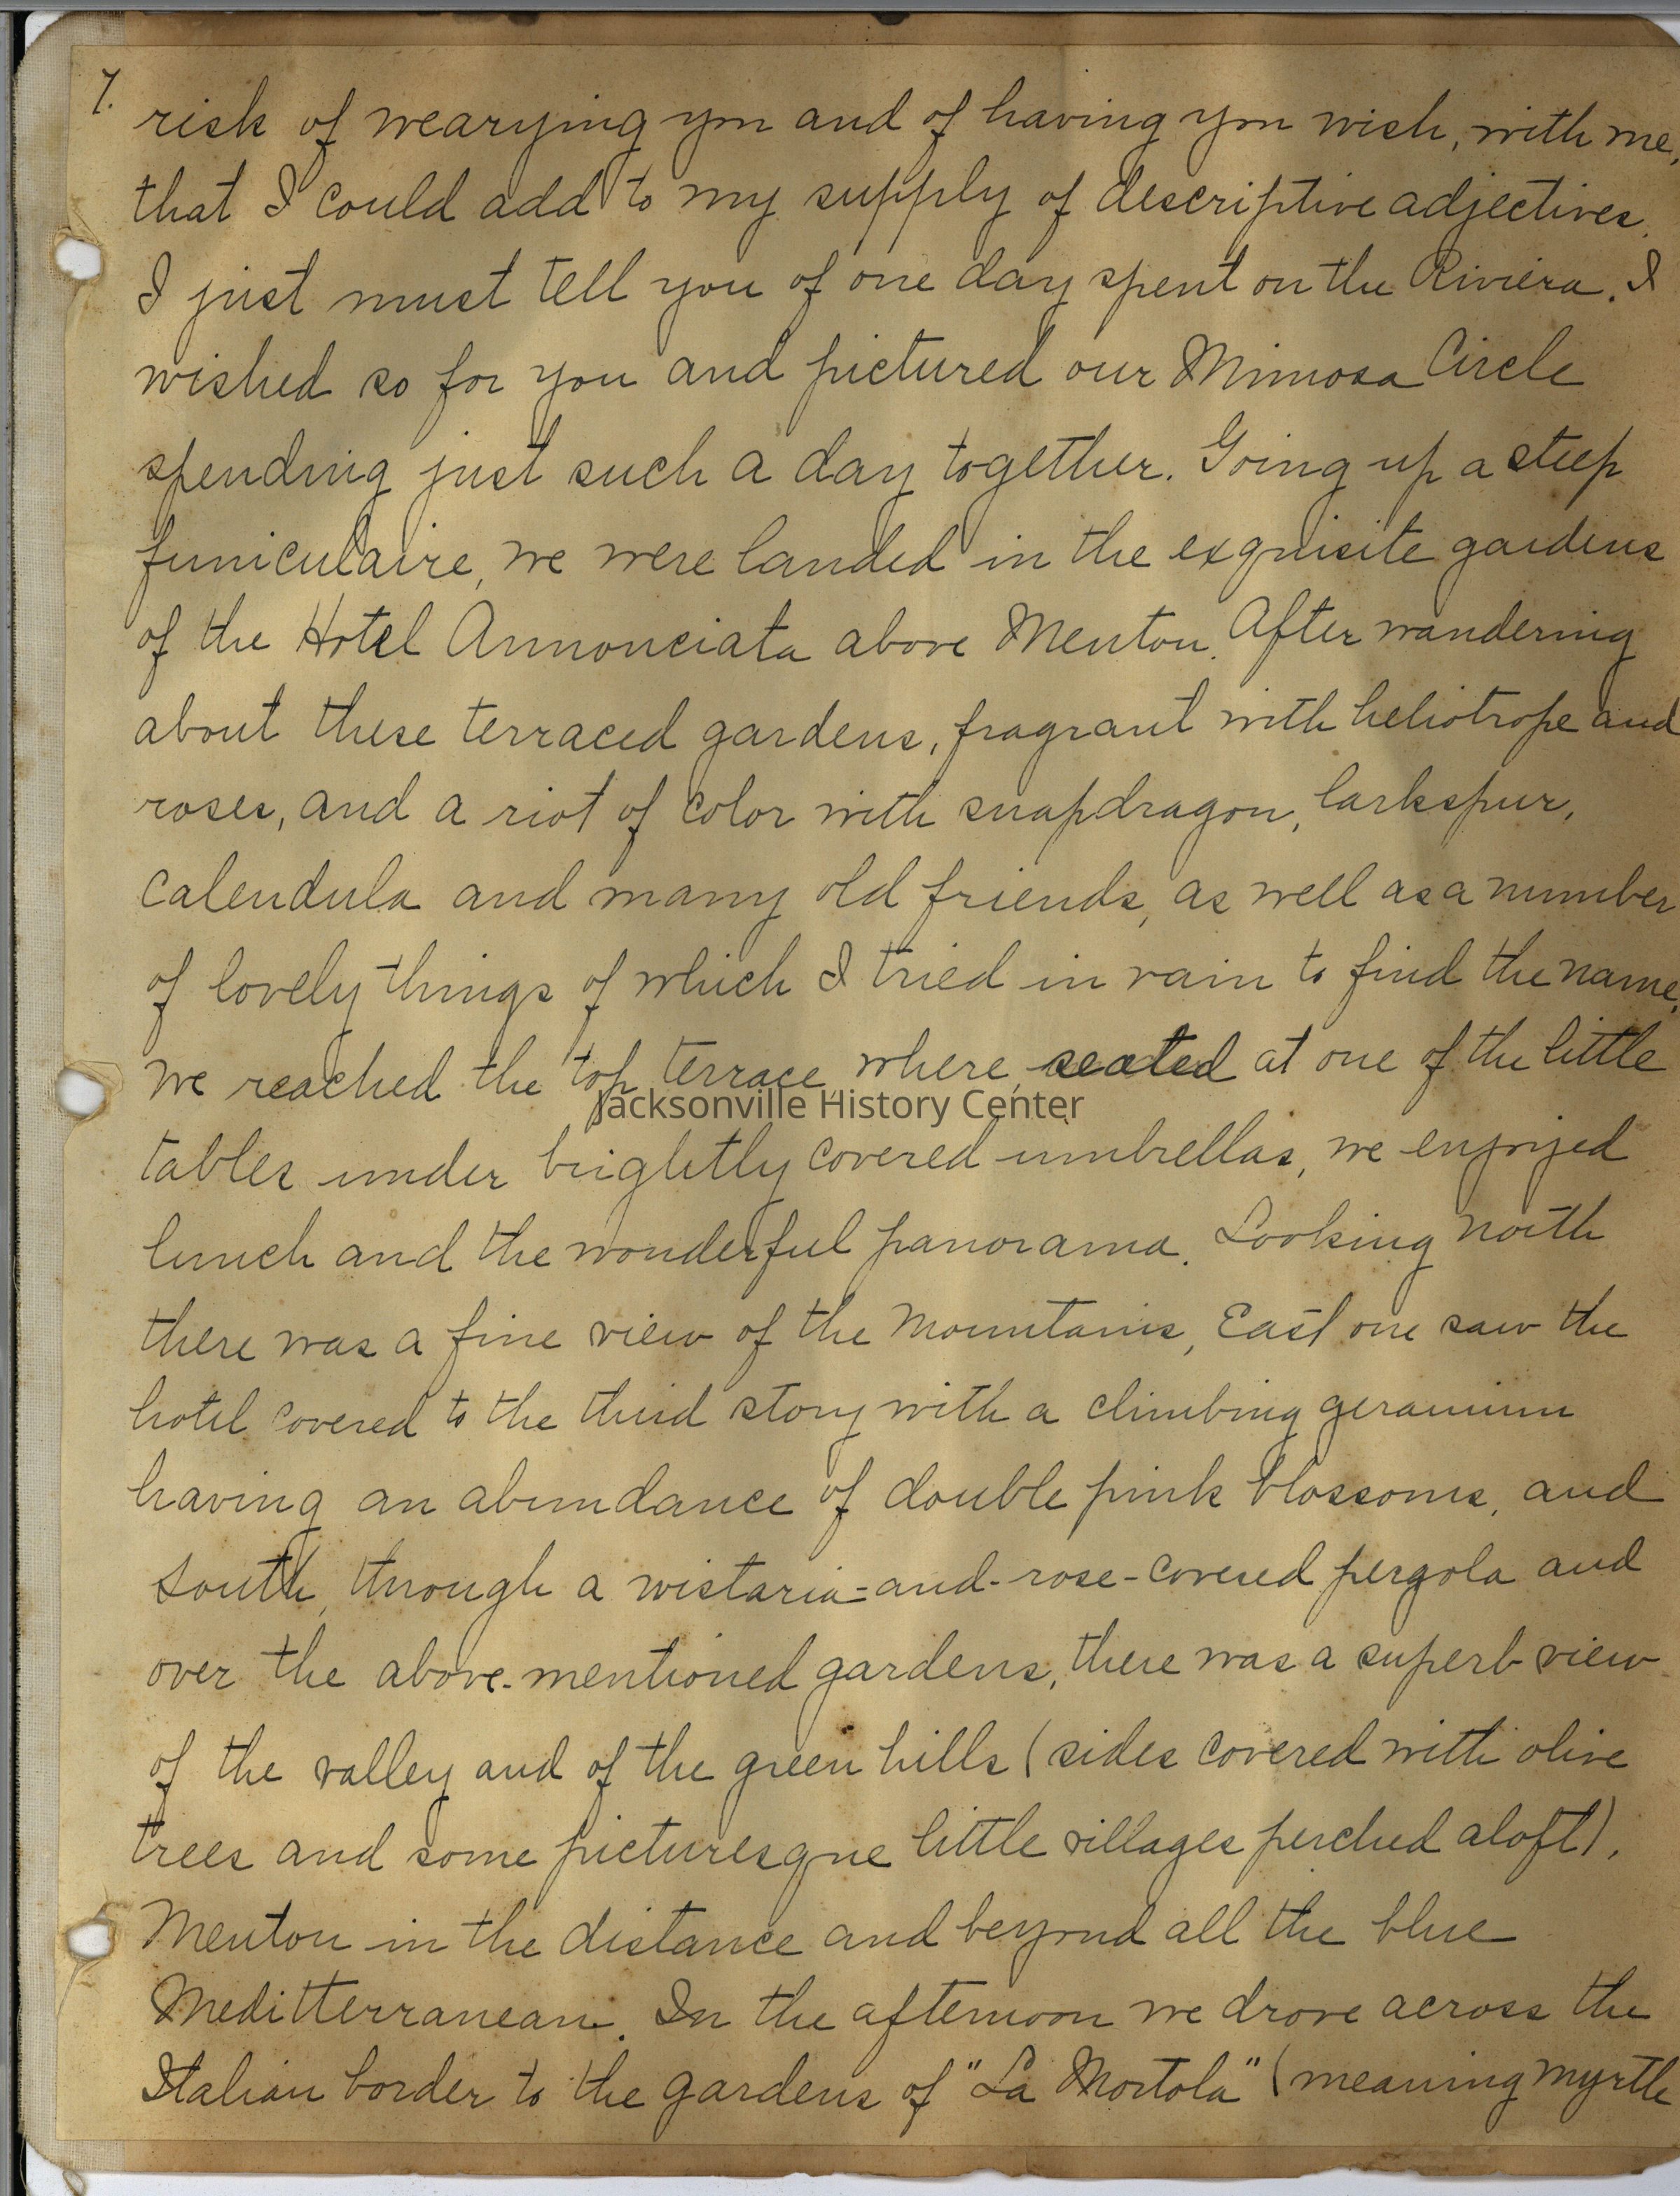 7.
risk of wearying you and of having you wish, with me,
that I could add to my supply of descriptive adjectives.
I just must tell you of one day spent on the Riviera. I
wished so for you and pictured our Mimosa Circle
spending just such a day together. Going up a steep
funiculaire, we were landed in the exquisite gardens
of the Hotel Annonciata above Menton. After wandering
about these terraced gardens, fragrant with heliotrope and
roses, and a riot of color with snapdragon, larkspur,
calendula and many old friends, as well as a number
of lovely things of which I tried in vain to find the name.
We reached the top terrace where, seated at one of the little
Jacksonville History Center
tables under brightly covered umbrellas, we enjoyed
lunch and the wonderful panorama. Looking north
there was a fine view of the mountains, East one saw the
hotel covered to the third story with a climbing geranium
having an abundance of double pink blossoms, and
South, through a wistaria-and-rose-covered pergola and
over the above-mentioned gardens, there was a superb view
of the valley and of the green hills (sides covered with olive
trees and some picturesque little villages perched aloft),
Menton in the distance and beyond all the blue
Meditterranean. In the afternoon we drove across the
Italian border to the gardens of "La Mortola" (meaning myrtle